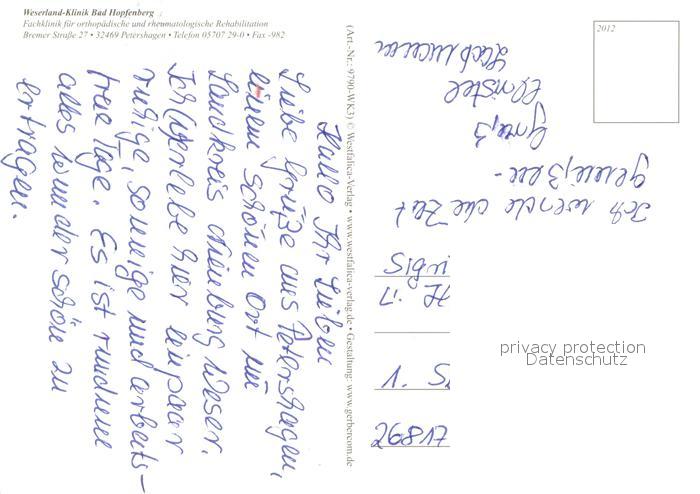 Weserland-Klinik Bad Hopfenberg
Fachklinik für orthopädische und rheumatologische Rehabilitation
Bremer Straße 27 • 32469 Petershagen • Telefon 05707 29-0 • Fax -982
Hallo Ihr Lieben
Liebe Grüße aus Petershagen,
einem schönen Ort im
Landkreis Nienburg Weser.
Ich erlebe hier ein paar
ruhige, sonnige und arbeits-
freie Tage. Es ist rundum
alles wunderschön zu
ertragen.
Ich werde die Zeit
genießen -
Gruß
Christel
(Art.-Nr.: 9790-WK3) © Westfalica-Verlag • www.westfalica-verlag.de • Gestaltung: www.gerbercom.de
2012
26817
privacy protection
Datenschutz